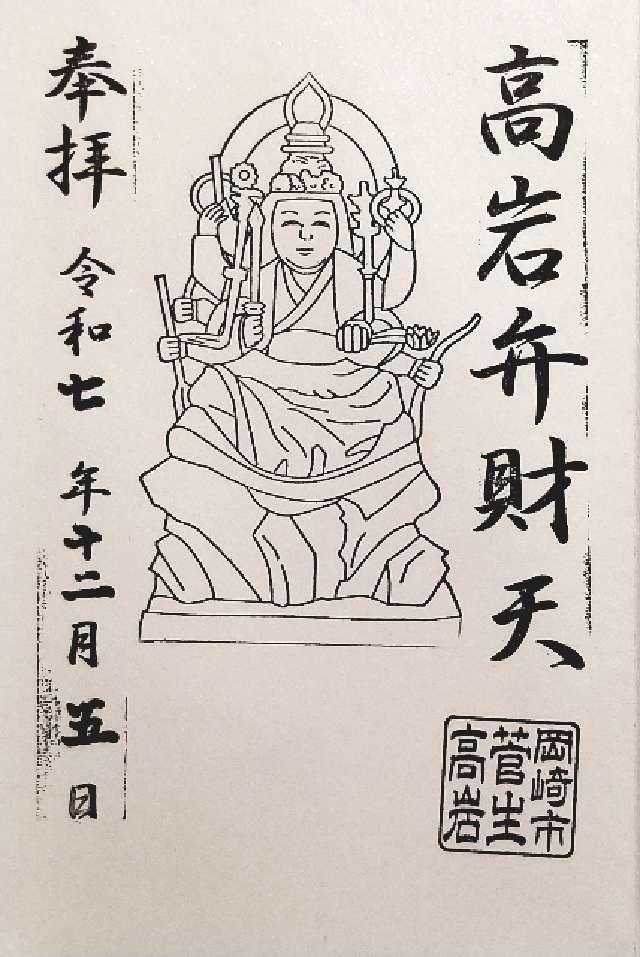 高岩弁財天
奉拝
令和七年十二月五日
岡崎市
菅生
高岩